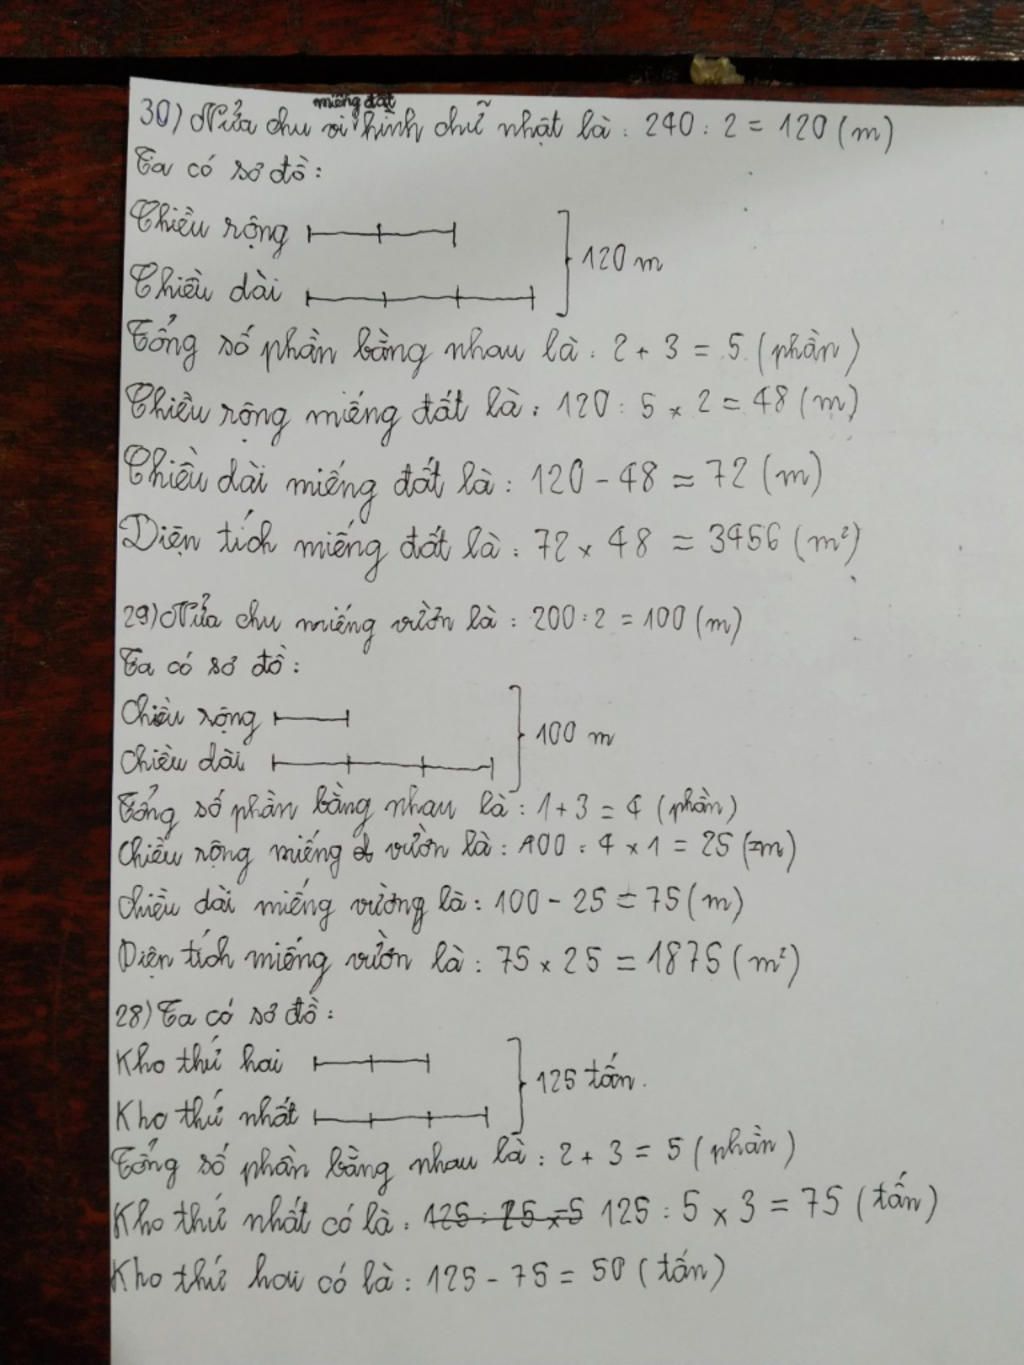 30) Nửa chu vi miếng đất hình chữ nhật là : 240 : 2 = 120 (m)
Ta có sơ đồ :
Chiều rộng
120 m
Chiều dài
Tổng số phần bằng nhau là : 2 + 3 = 5 (phần)
Chiều rộng miếng đất là : 120 : 5 x 2 = 48 (m)
Chiều dài miếng đất là : 120 - 48 = 72 (m)
Diện tích miếng đất là : 72 x 48 = 3456 (m²)
29) Nửa chu miếng vườn là : 200 : 2 = 100 (m)
Ta có sơ đồ :
Chiều rộng
100 m
Chiều dài
Tổng số phần bằng nhau là : 1 + 3 = 4 (phần)
Chiều rộng miếng vườn là : 100 : 4 x 1 = 25 (m)
Chiều dài miếng vường là : 100 - 25 = 75 (m)
Diện tích miếng vườn là : 75 x 25 = 1875 (m²)
28) Ta có sơ đồ :
Kho thứ hai
125 tấn.
Kho thứ nhất
Tổng số phần bằng nhau là : 2 + 3 = 5 (phần)
Kho thứ nhất có là : 125 : 5 x 3 = 75 (tấn)
Kho thứ hai có là : 125 - 75 = 50 (tấn)